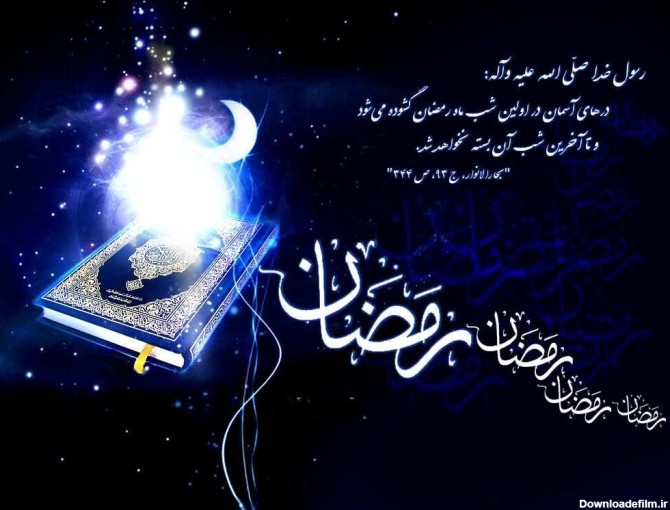 رسول خدا صلّی الله علیه وآله:
درهای آسمان در اولین شب ماه رمضان گشوده می‌شود
و تا آخرین شب آن بسته نخواهد شد.
"بحارالانوار، ج ۹۳، ص ۳۴۴"
رمضان
رمضان
رمضان
رمضان
Downloadefilm.ir